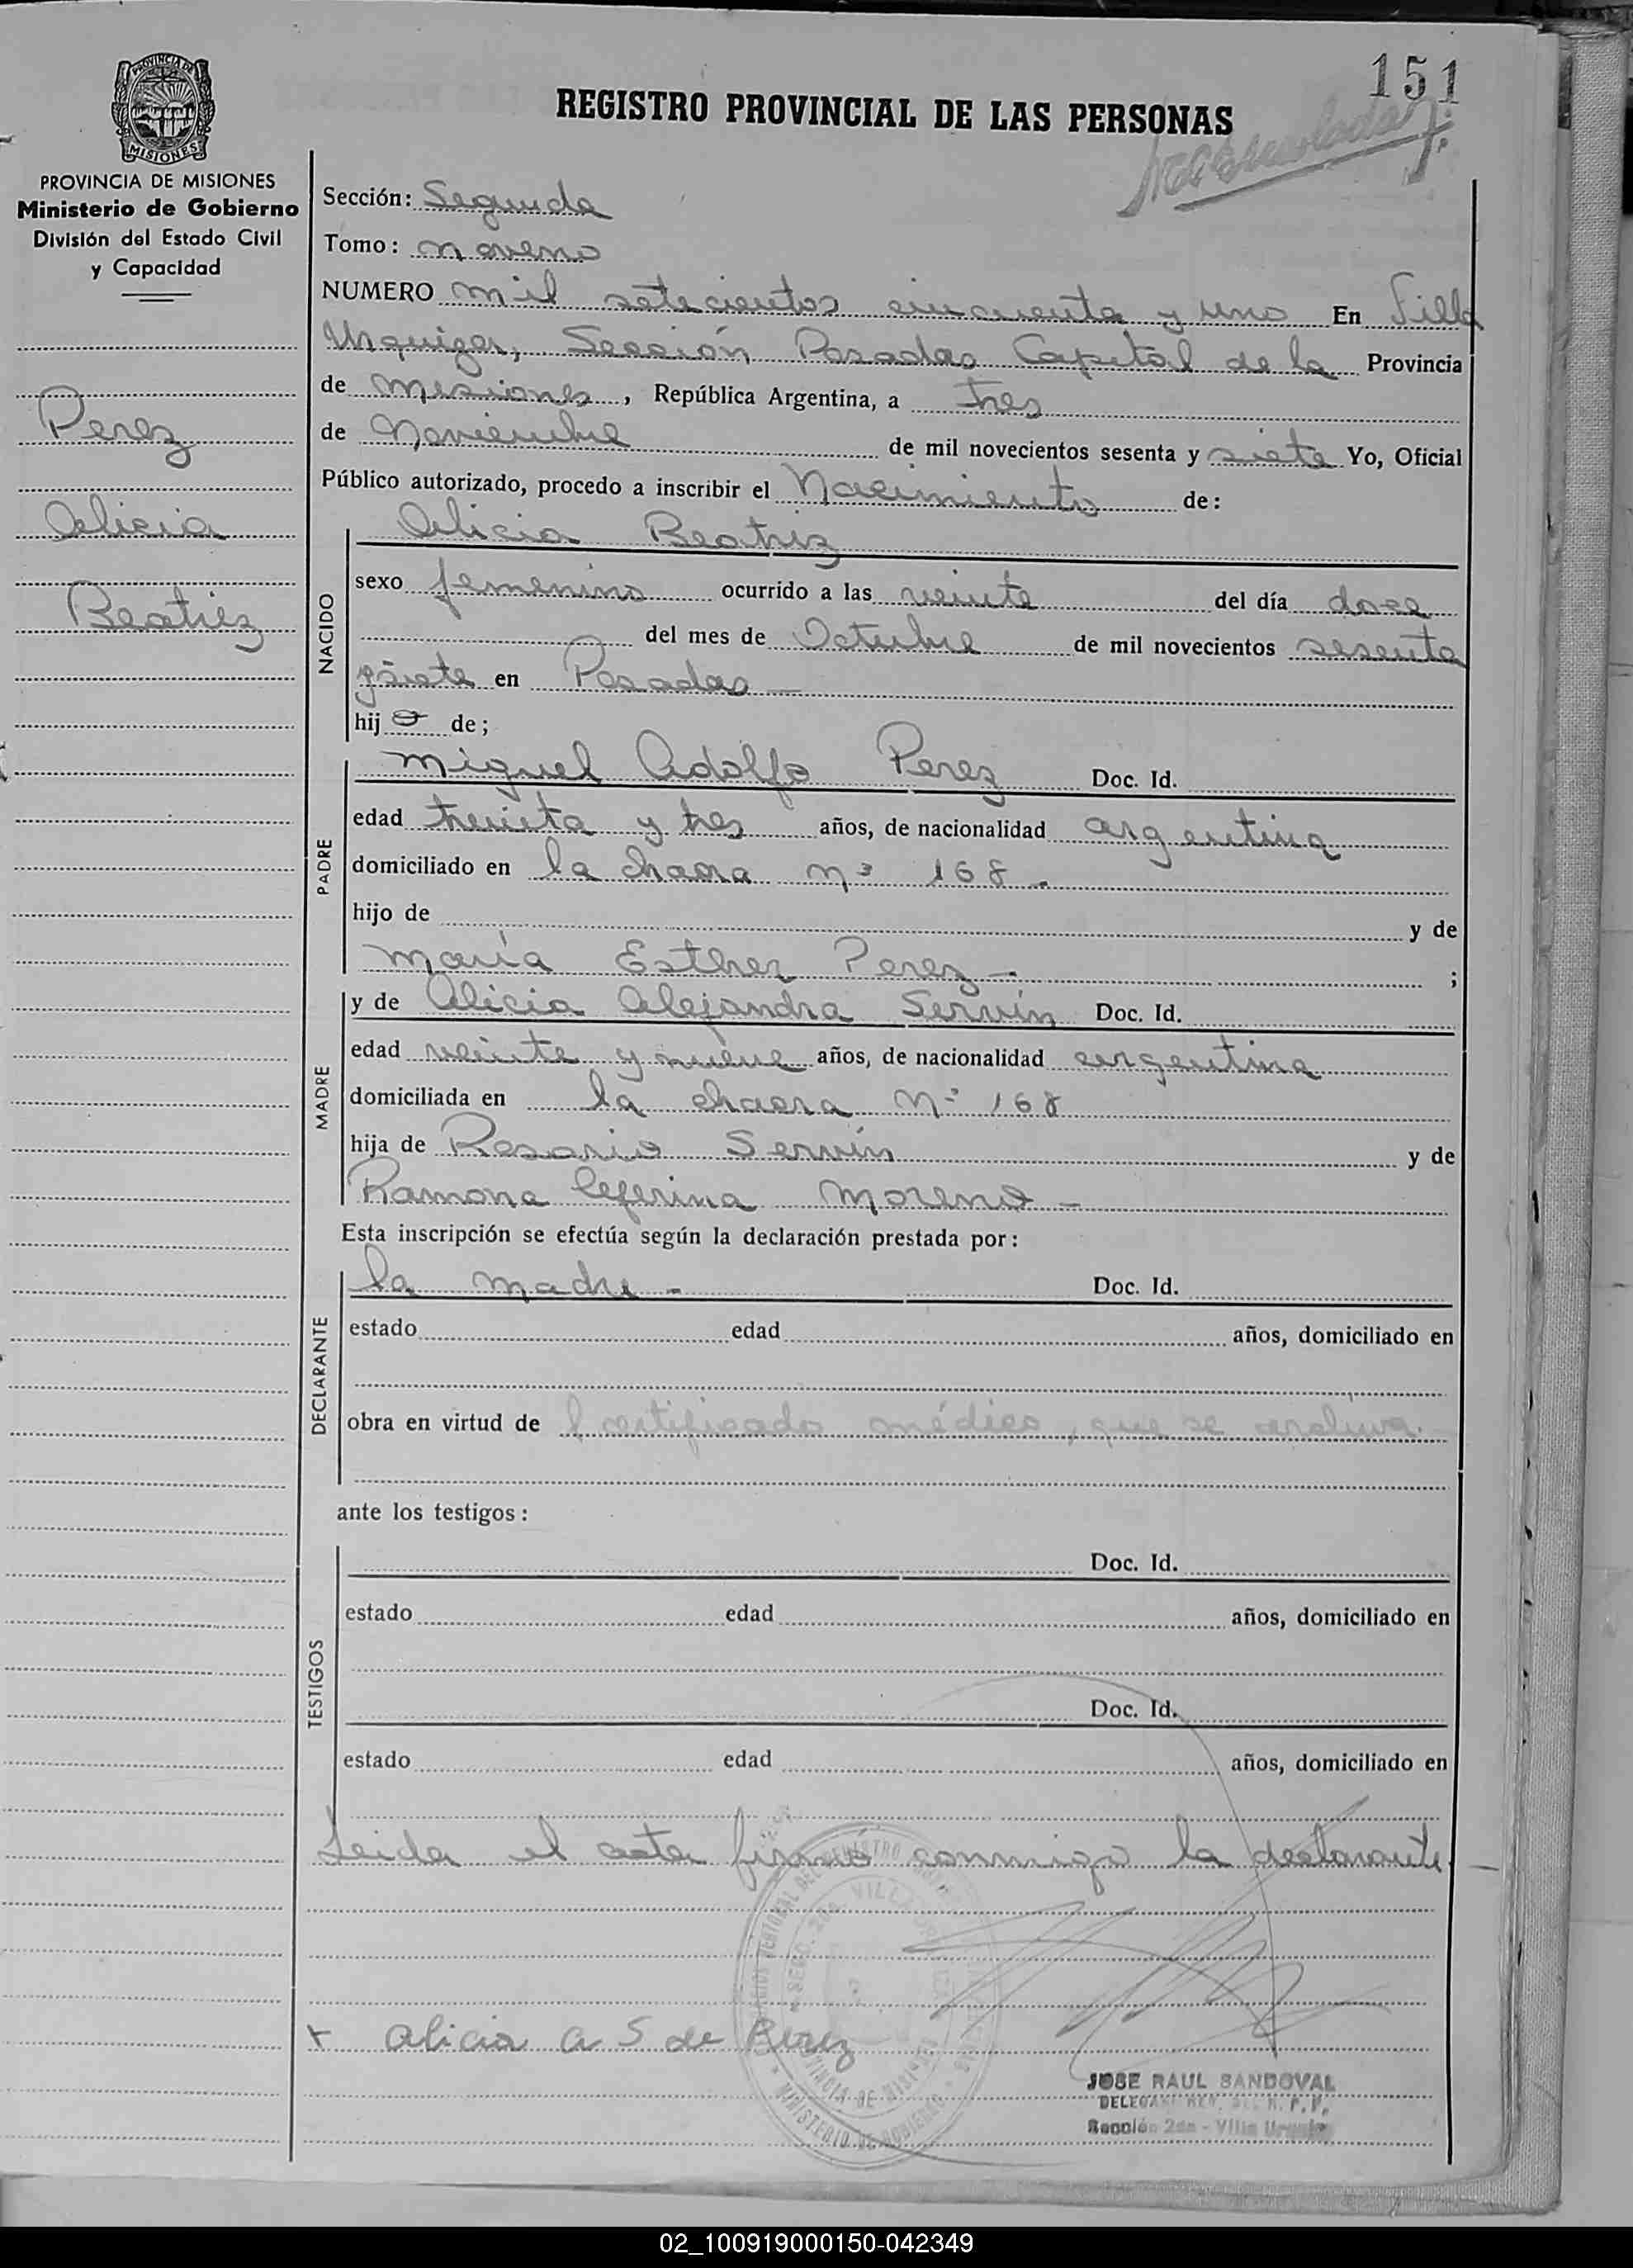 151
REGISTRO PROVINCIAL DE LAS PERSONAS
PROVINCIA DE
MISIONES
PROVINCIA DE MISIONES
Ministerio de Gobierno
División del Estado Civil
y Capacidad
Perez
Alicia
Beatriz
Sección: Segunda
Tomo: noveno
NUMERO mil setecientos cincuenta y uno En Villa
Urquiza, Sección Posadas Capital de la Provincia
de misiones, República Argentina, a tres
de Noviembre de mil novecientos sesenta y siete Yo, Oficial
Público autorizado, procedo a inscribir el Nacimiento de:
NACIDO
Alicia Beatriz
sexo femenino ocurrido a las veinte del día doce
del mes de Octubre de mil novecientos sesenta
y siete en Posadas —
hija de;
PADRE
Miguel Adolfo Perez Doc. Id.
edad treinta y tres años, de nacionalidad argentina
domiciliado en la chacra nº 168.
hijo de y de
María Esther Perez — ;
MADRE
y de Alicia Alejandra Servín Doc. Id.
edad veinte y nueve años, de nacionalidad argentina
domiciliada en la chacra Nº 168
hija de Rosario Servín y de
Ramona Ceferina Moreno —
Esta inscripción se efectúa según la declaración prestada por:
DECLARANTE
la madre - Doc. Id.
estado edad años, domiciliado en
obra en virtud de l certificado médico, que se archiva.
ante los testigos:
TESTIGOS
Doc. Id.
estado edad años, domiciliado en
Doc. Id.
estado edad años, domiciliado en
Leida el acta firmó conmigo la declarante —
x Alicia A S de Perez
JOSE RAUL SANDOVAL
Sección 2da - Villa Urquiza
MINISTERIO DE GOBIERNO
02_100919000150-042349